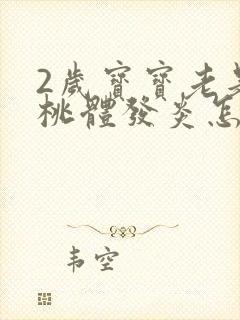 2歲寶寶老是
桃體發炎怎
韦空